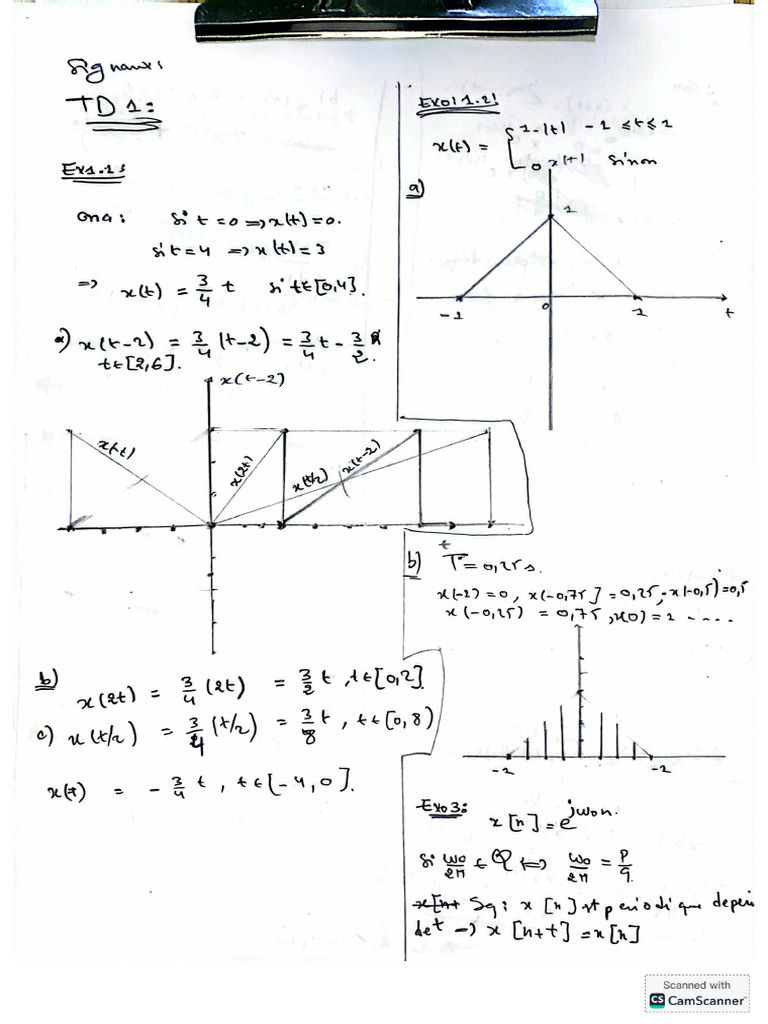 Signaux:
TD 1:
Ex1.1:
ona: si t = 0 => x(t) = 0.
si t = 4 => x(t) = 3
=> x(t) = 3/4 t si t∈[0,4].
a) x(t-2) = 3/4 (t-2) = 3/4 t - 3/2.
t∈[2,6].
x(t-2)
x(-t)
x(2t)
x(t/2)
x(t-2)
t
b) x(2t) = 3/4 (2t) = 3/2 t, t∈[0,2].
c) x(t/2) = 3/4 (t/2) = 3/8 t, t∈[0,8)
x(-t) = - 3/4 t, t∈[-4,0].
Exo: 1.2:
x(t) = { 1-|t| -1 ≤ t ≤ 1
0 sinon
a)
1
-1 0 1 t
b) T = 0,25 s.
x(-1) = 0, x(-0,75] = 0,25, x(-0,5) = 0,5
x(-0,25) = 0,75, x(0) = 1 ....
-1 -1
Exo 3:
x[n] = e^jω0n.
Si ω0/2π ∈ Q <=> ω0/2π = p/q.
Sq: x[n] est periodique de peri
de t -> x[n+t] = x[n]
Scanned with
CS CamScanner